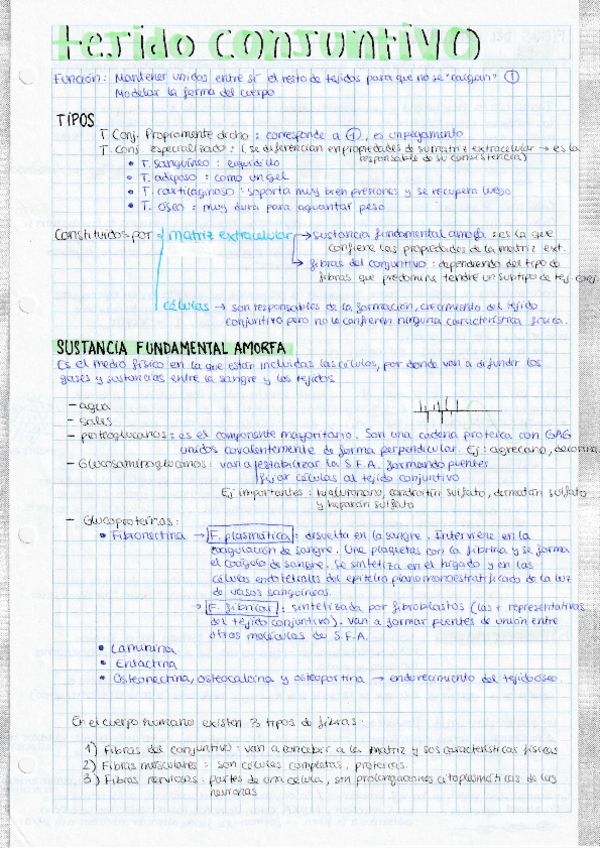 tejido conjuntivo
Función: Mantener unidos entre sí el resto de tejidos para que no se "caigan" ①
Modelar la forma del cuerpo
TIPOS
T Conj. Propiamente dicho: corresponde a ①, es un pegamento
T. Conj especializado: (se diferencian en propiedades de su matriz extracelular → es la
responsable de su consistencia)
• T. sanguíneo: liquidillo
• T. adiposo: como un gel
• T. cartilaginoso: soporta muy bien presiones y se recupera luego
• T. óseo: muy duro para aguantar peso
Constituidos por matriz extracelular → sustancia fundamental amorfa: es la que
confiere las propiedades de la matriz ext.
→ fibras del conjuntivo: dependiendo del tipo de
fibras que predomine tendré un subtipo de tej. conj.
células → son responsables de la formación, crecimiento del tejido
conjuntivo pero no le confieren ninguna característica física.
SUSTANCIA FUNDAMENTAL AMORFA
Es el medio físico en la que están incluidas las células, por donde van a difundir los
gases y sustancias entre la sangre y los tejidos
- agua
- sales
- proteoglucanos: es el componente mayoritario. Son una cadena proteica con GAG
unidos covalentemente de forma perpendicular. Ej: agrecano, decorina
- Glucosaminoglucanos: van a estabilizar la S.F.A. formando puentes
fijar células al tejido conjuntivo
Ej importantes: hialuronano, condroitín sulfato, dermatán sulfato
y heparán sulfato
- Glucoproteínas:
• Fibronectina → F. plasmática: disuelta en la sangre. Interviene en la
coagulación de sangre. Une plaquetas con la fibrina y se forma
el coágulo de sangre. Se sintetiza en el hígado y en las
células endoteliales del epitelio plano monoestratificado de la luz
de vasos sanguíneos.
→ F. fibrilar: sintetizada por fibroblastos (las + representativas
del tejido conjuntivo). Van a formar puentes de unión entre
otras moléculas de S.F.A.
• Laminina
• Entactina
• Osteonectina, osteocalcina y osteopontina → endurecimiento del tejido óseo.
En el cuerpo humano existen 3 tipos de fibras:
1) Fibras del conjuntivo: van a a la matriz y sus características físicas
2) Fibras musculares: son células completas, proteínas.
3) Fibras nerviosas: partes de una célula, son prolongaciones citoplasmáticas de las
neuronas